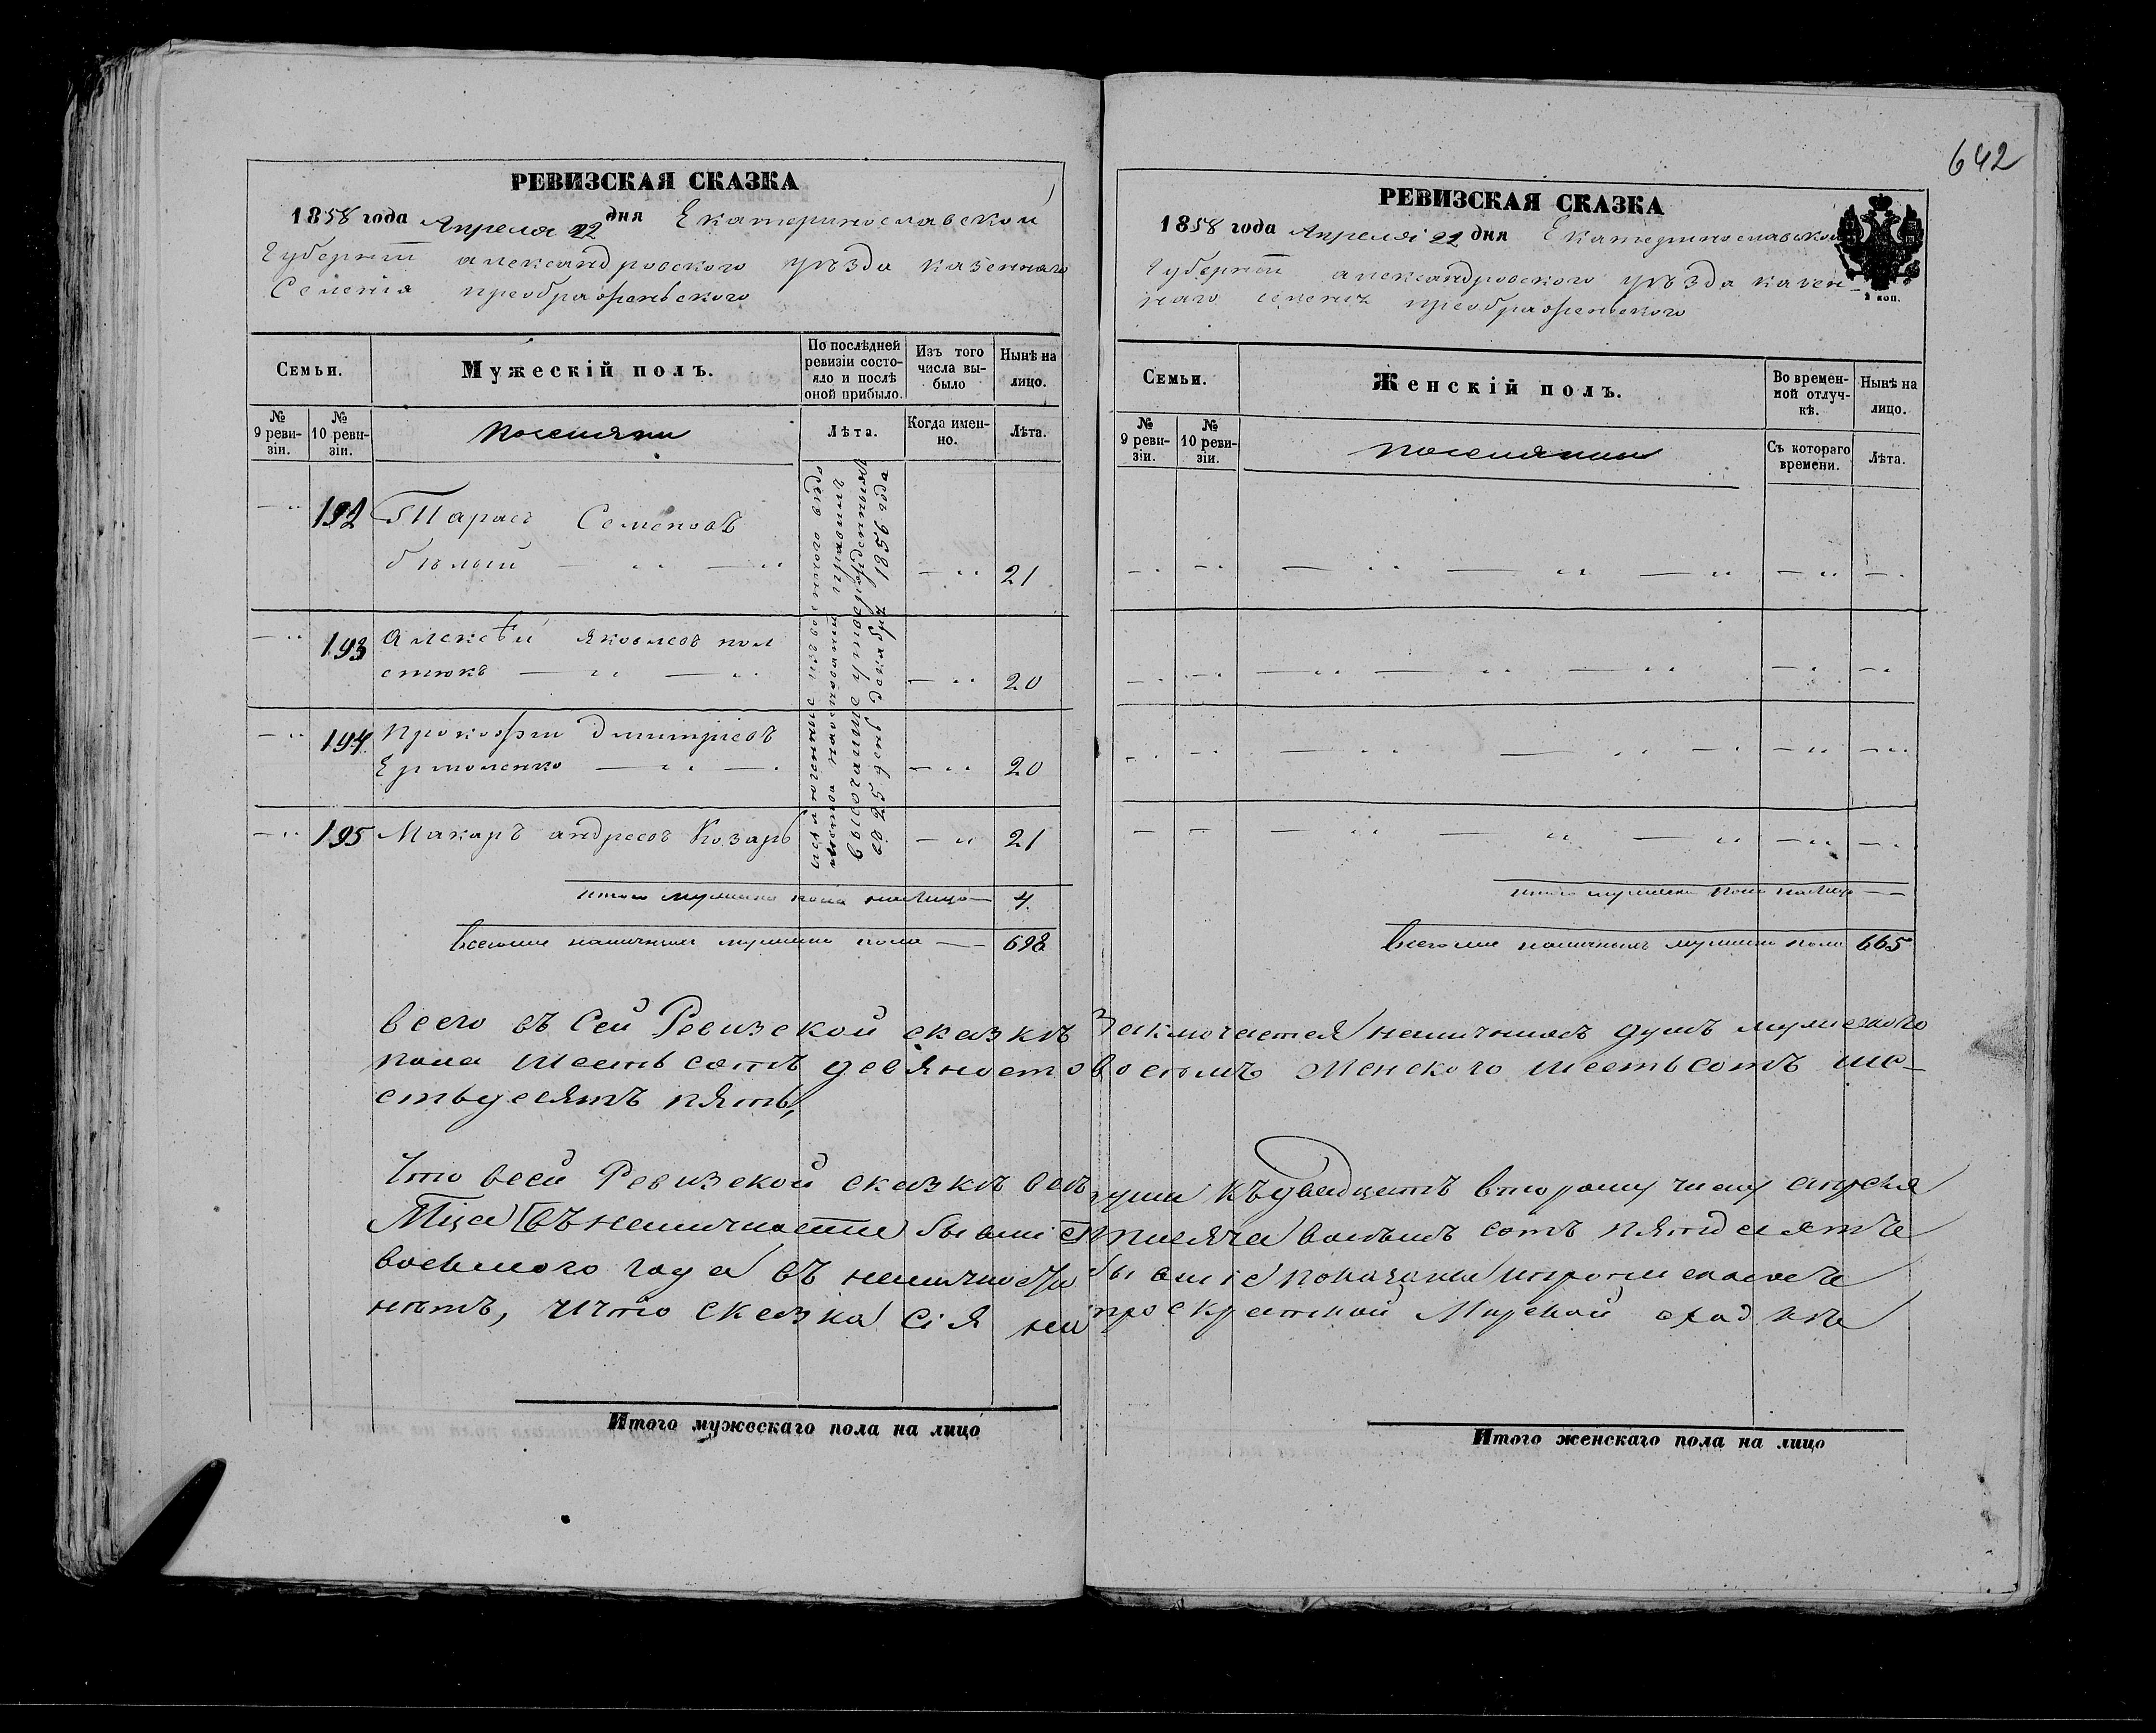 642
РЕВИЗСКАЯ СКАЗКА
1858 года Апреля 22 дня Екатеринославской
Губернiи александровского уѣзда казеннаго
Селенiя преображеньского
Семьи.
Мужескiй полъ.
По послѣдней ревизiи состояло и послѣ оной прибыло.
Изъ того числа выбыло
Нынѣ на лицо.
№ 9 ревизiи.
№ 10 ревизiи.
Поселяни
Лѣта.
Когда именно.
Лѣта.
192 Тарасъ Семеновъ
бѣлый 21
193 Алексѣй яковлевъ пол
стюкъ 20
194 Прокофiи Дмитрiевъ
Ермоленко 20
195 Макаръ андреевъ Козарь 21
въ 25 день Декабря 1856 года
итого мужеска пола на лицо 4
всего наличныхъ мужеска пола 698
РЕВИЗСКАЯ СКАЗКА
1858 года Апреля 22 дня Екатеринославской
Губернiи александровского уѣзда казен-
наго селенiя преображеньского
2 коп.
Семьи.
Женскiй полъ.
Во временной отлучкѣ.
Нынѣ на лицо.
№ 9 ревизiи.
№ 10 ревизiи.
Съ котораго времени.
Лѣта.
итого пола на лицо
всего наличныхъ пола 665
всего въ Сей Ревизской сказкѣ Заключается наличныхъ душъ мужеского
пола шестьсотъ девяносто восемъ женского шестьсотъ ше-
стьдесятъ пять,
Что всей Ревизской сказкѣ всѣ души къ двадцатъ второму числу апреля
Мца въ наличности бывшiе тысяча восемь сотъ пятдесятъ
восьмого года въ наличности бывшiе показаны
нѣтъ, и что сказка сiя на Мирской сходкѣ
Итого мужескаго пола на лицо
Итого женскаго пола на лицо